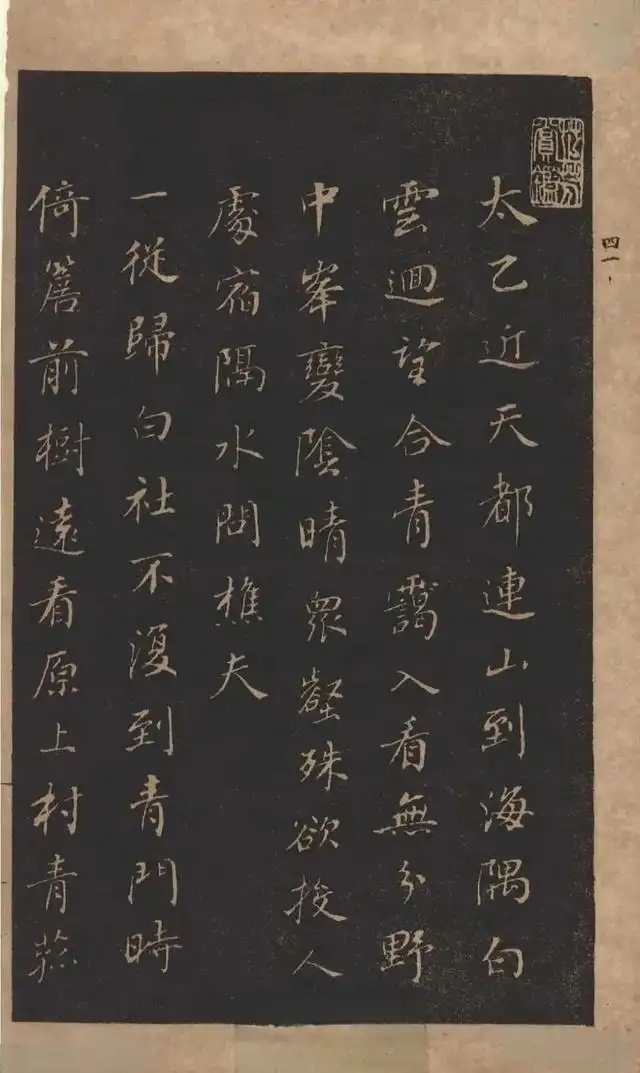 太乙近天都連山到海隅白
雲迴望合青靄入看無分野
中峯變陰晴眾壑殊欲投人
處宿隔水問樵夫
一從歸白社不復到青門時
倚簷前樹遠看原上村青菰
四一